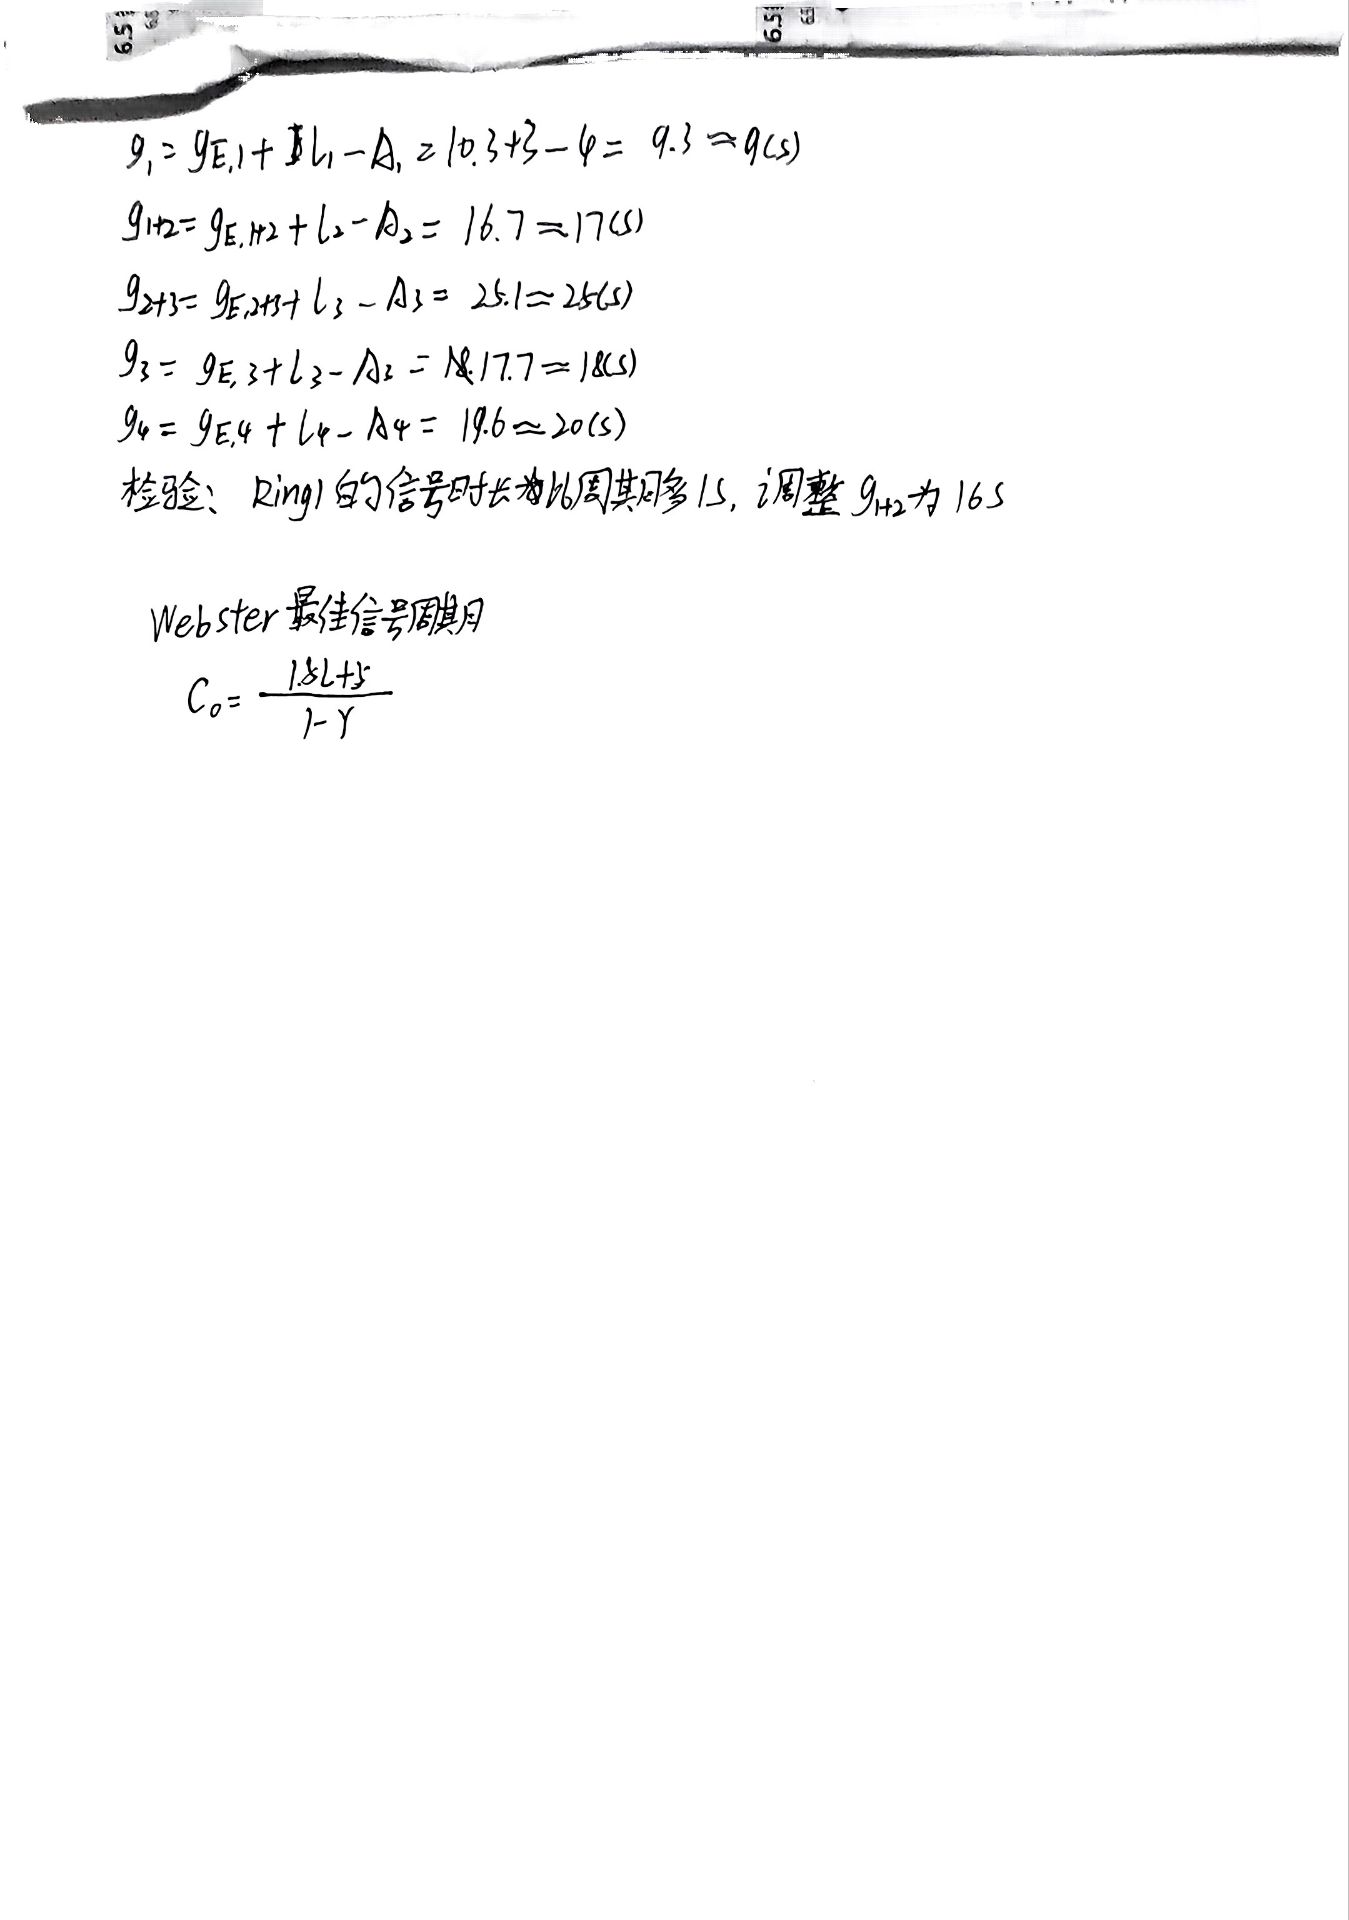 6.5 6.5
g₁ = g_E,1 + l₁ - A₁ = 10.3+3-4 = 9.3 ≈ 9(s)
g₁₊₂ = g_E,1+2 + l₂ - A₂ = 16.7 ≈ 17(s)
g₂₊₃ = g_E,2+3 + l₃ - A₃ = 25.1 ≈ 25(s)
g₃ = g_E,3 + l₃ - A₃ = 17.7 ≈ 18(s)
g₄ = g_E,4 + l₄ - A₄ = 19.6 ≈ 20(s)
检验: Ring1 的信号时长比周期多1s, 调整 g₁₊₂ 为 16s
Webster 最佳信号周期
C₀ = (1.5L+5)/(1-Y)